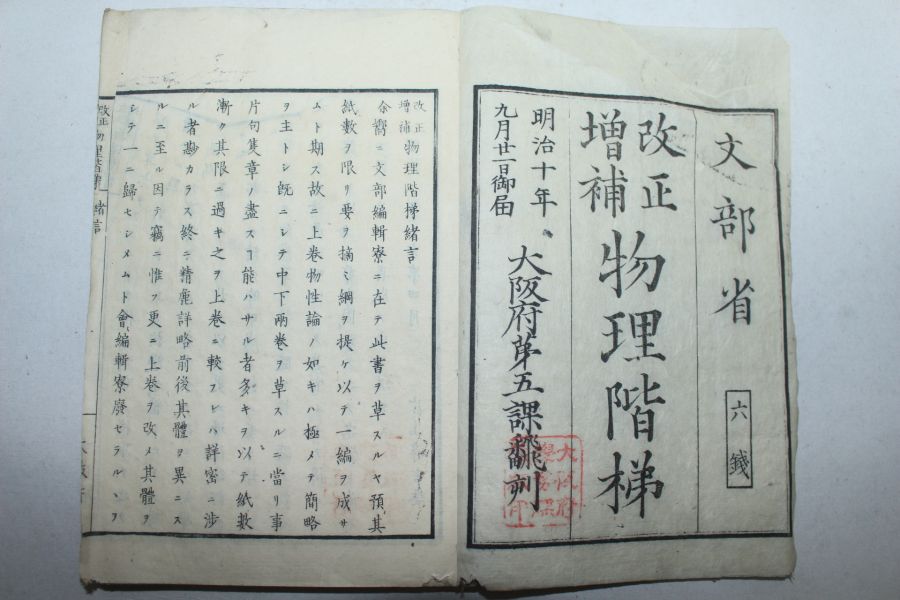 文部省
六錢
改正
增補
物理階梯
明治十年
九月廿一日御届
大阪府第五課飜刻
改正
增補
物理階梯緒言
余嚮ニ文部編輯寮ニ在テ此書ヲ草スルヤ預其
紙數ヲ限リ要ヲ摘ミ綱ヲ提ケ以テ一編ヲ成サ
ムト期ス故ニ上卷物性論ノ如キハ極メテ簡略
ヲ主トシ既ニシテ中下兩卷ヲ草スルニ當リ事
片句隻章ノ盡スヿ能ハサル者多キヲ以テ紙數
漸ク其限ニ過キ之ヲ上卷ニ較フレハ詳密ニ渉
ル者尠カラス終ニ精麁詳略前後其體ヲ異ニス
ルニ至ル因テ竊ニ惟フ更ニ上卷ヲ改メ其體ヲ
シテ一ニ歸セシメムト會編輯寮廢セラルヽヲ
改正物理階梯 緒言